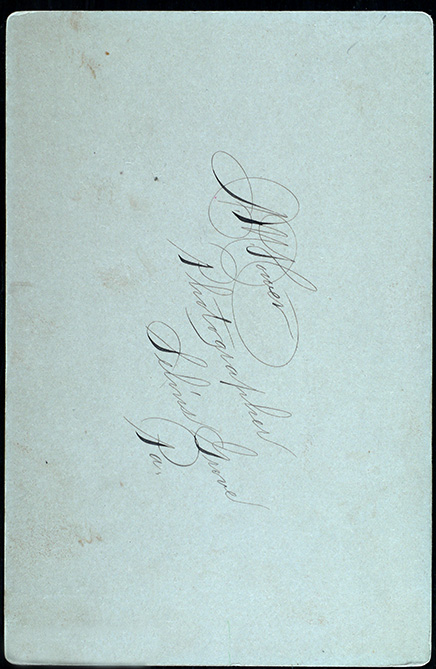 Photographer
Selins Grove
Pa.